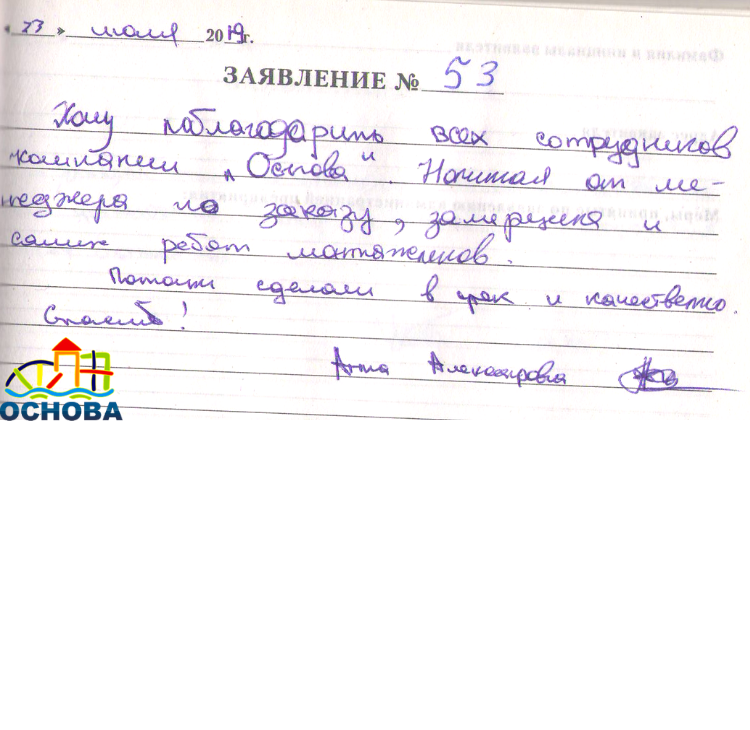 « 23 » июля 2019г.
ЗАЯВЛЕНИЕ № 53
Хочу поблагодарить всех сотрудников
компании „Основа". Начиная от ме-
неджера по заказу, замерщика и
самих работ монтажников.
Потолки сделали в срок и качественно.
Спасибо!
Анна Александровна
ОСНОВА